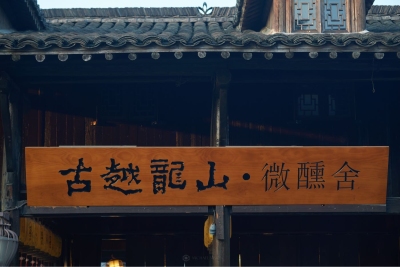 古越龍山·微醺舍